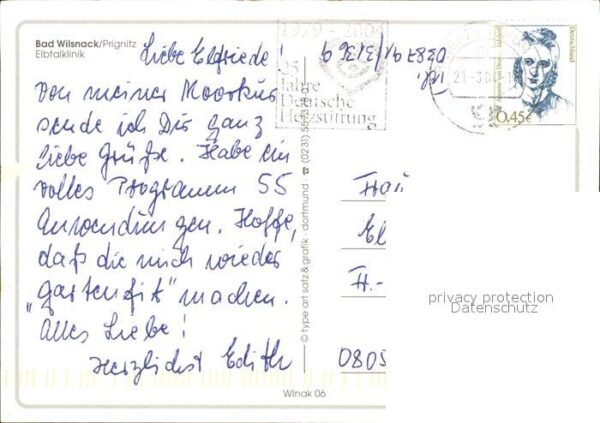 Bad Wilsnack/Prignitz
Elbtalklinik
Liebe Elfriede!
Von meiner Moorkur
sende ich Dir ganz
liebe Grüße. Habe ein
volles Programm 55
Anwendungen. Hoffe,
daß die mich wieder
"gartenfit" machen.
Alles Liebe!
Herzlichst Edith
Tel. 038791/3136 9
1979 - 2004
25
Jahre
Deutsche
Herzstiftung
Deutschland
0,45€
© type art satz & grafik · dortmund · ☎ (0231)
Frau
El
H.-
0805
privacy protection
Datenschutz
Wlnak 06